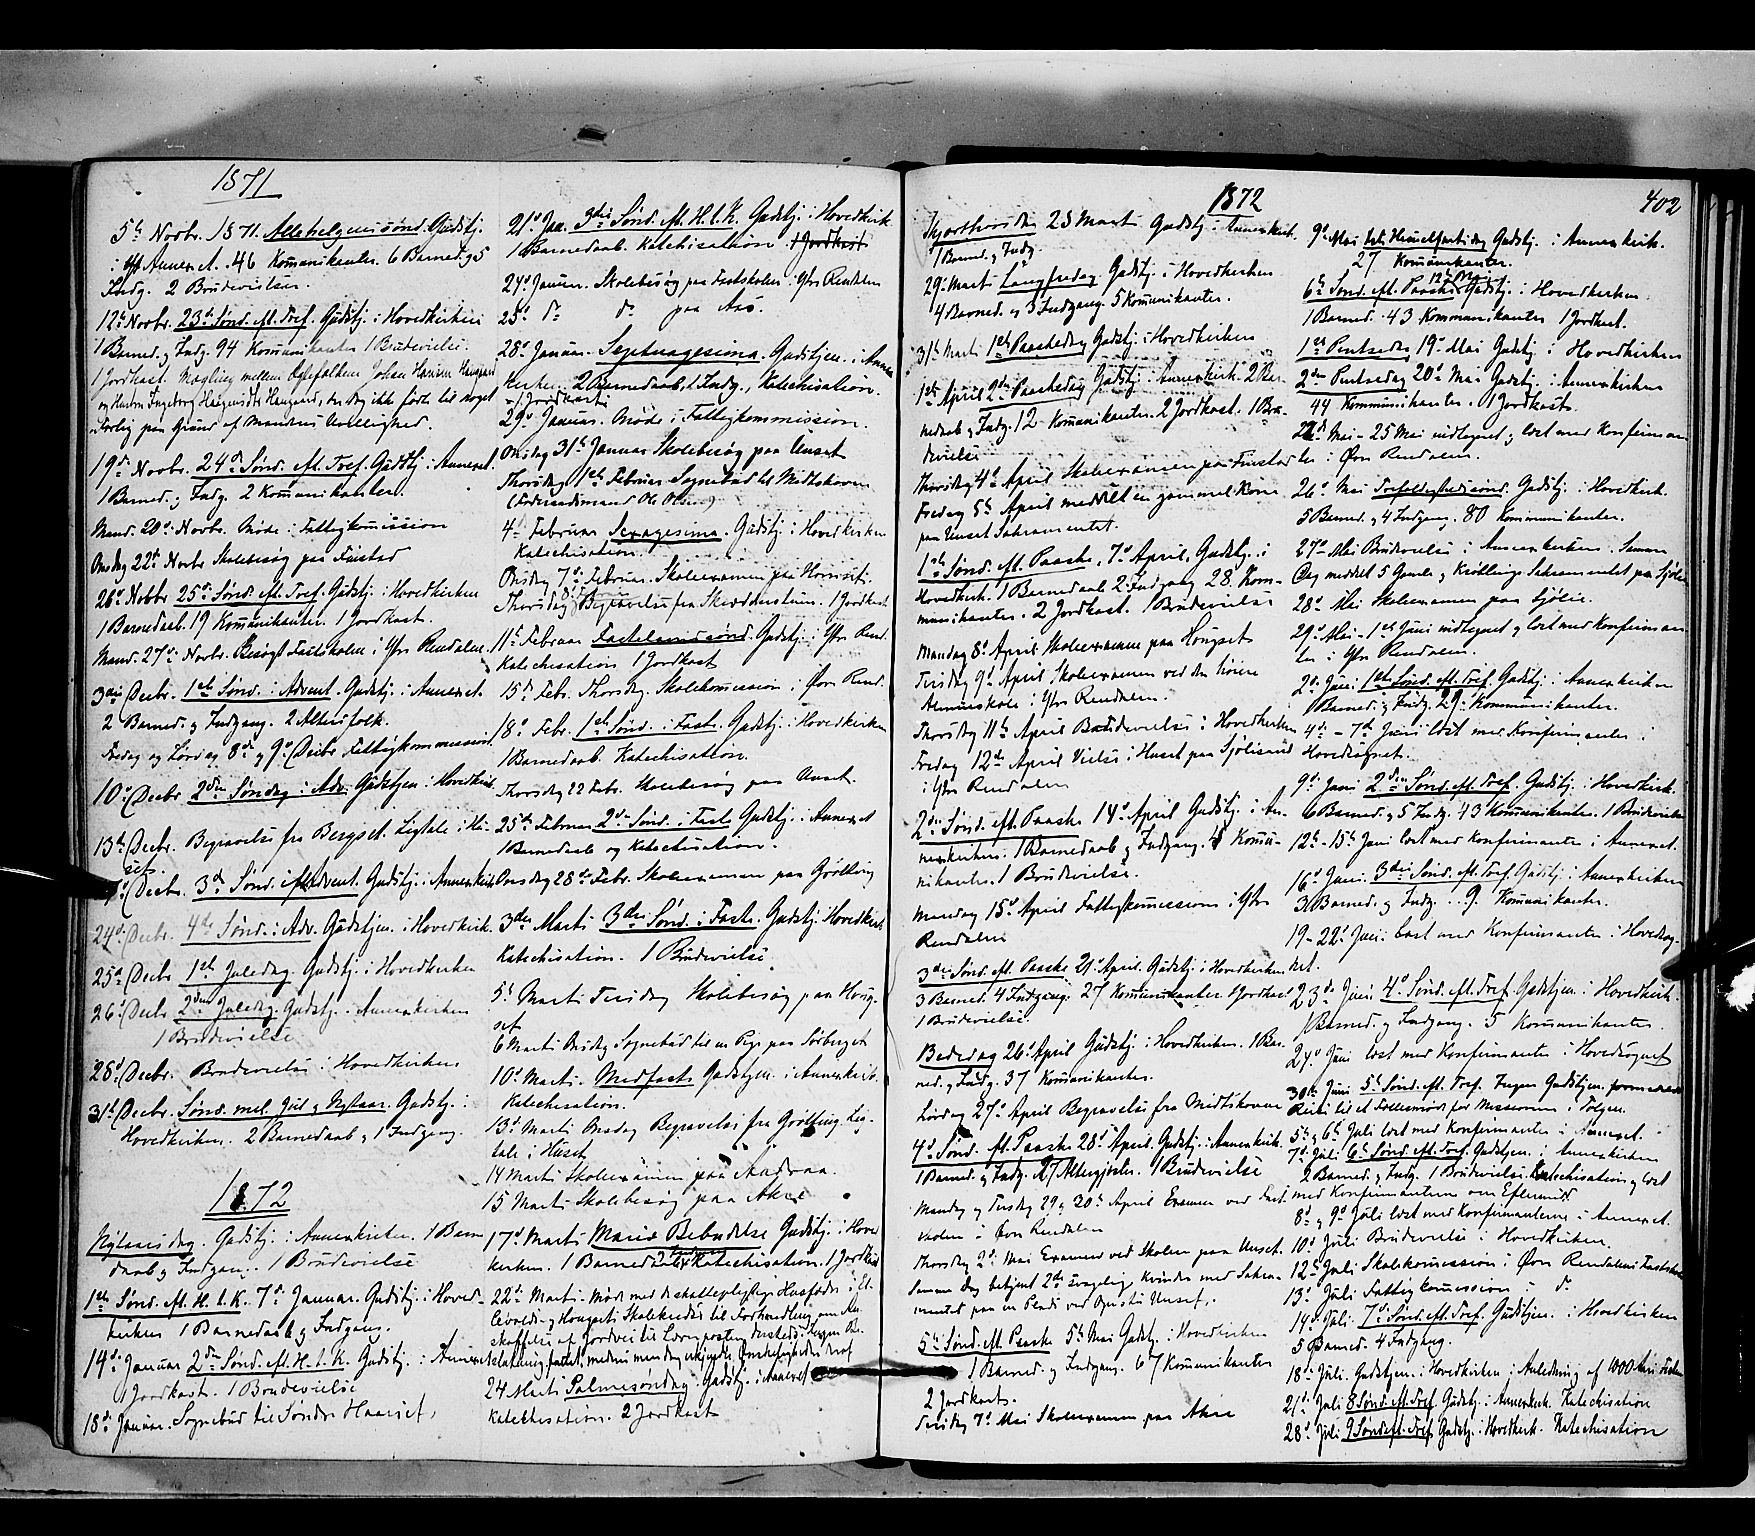 1871
5te Novbr. 1871. Allehelgenssønd. Gudstj.
i Annexet. 46 Komunikanter. 6 Barned. og 5
Indg. 2 Brudevielser.
12te Novbr. 23de Sønd. eft. Tref. Gudstj. i Hovedkirken
1 Barned. og Indg. 94 Komunikanter 1 Brudevielse.
1 Jordkast. Mægling mellem Ægtefolkene Johan
og Hustru Ingeborg der dog ikke førte til noget
paa Grund af Mandens
19de Novbr. 24de Sønd. eft. Tref. Gudstj. i Annexet.
1 Barned. og Indg. 2 Komunikanter.
Mand. 20de Novbr. Møde i Fattigkomission
Onsdag 22de Novbr Skolebesøg paa Fiistad
26de Novbr 25de Sønd. eft. Tref. Gudstj. i Hovedkirken
1 Barnedaab. 19 Komunikanter. 1 Jordkast.
Mand. 27de Novbr. Besøgt Fastskolen i Ytre Rendalen.
3die Decbr. 1ste Sønd. i Advent. Gudstj. i Annexet.
2 Barned. og Indgang. 2 Altersfolk.
Fredag og Lørdag 8de og 9de Decbr Fattigkommission.
10de Decbr 2den Søndag i Adv. Gudstjen. i Hovedkirk.
13de Decbr. Begravelse fra Bergset. Ligtale i Hu-
set.
Decbr. 3de Sønd. i Advent. Gudstj. i Annexkirk
24de Decbr. 4de Sønd. i Adv. Gudstjen. i Hovedkirk.
25de Decbr 1ste Juledag Gudstj. i Hovedkirken
26de Decbr 2den Juledag. Gudstj. i Annexkirken
1 Brudevielse
28de Decbr. Brudevielse i Hovedkirken
31te Decbr. Sønd. mel. Jul og Nytaar. Gudstj. i
Hovedkirken. 2 Barnedaab og 1 Indgang.
1872
Nytaarsdag. Gudstj. i Annexkirken. 1 Barne
daab og Indgang. 1 Brudevielse
1ste Sønd. eft. H. t. K. 7de Januar. Gudstj. i Hoved-
kirken 1 Barnedaab og Indgang.
14de Januar 2den Sønd. eft. H. t. K. Gudstj. i Annexet
1 Jordkast. 1 Brudevielse
18de Januar. Sognebud til Søndre Haarset.
21de Jan. 3die Sønd. eft. H. t. K. Gudstj. i Hovedkirk
1 Barnedaab. Katechisation. 1 Jordkast
24de Januar. Skolebesøg paa Fastskolen i Ytre Rendalen
25de do do paa Aas.
28de Januar. Septuagesima. Gudstjen. i Annex
kirken. 2 Barnedaab, 1 Indg., Katechisation.
1 Jordkast
29de Januar. Møde i Fattigkommission.
Onsdag 31te Januar Skolebesøg paa Unset
Thorsdag 1ste Februar Sognebud til Midtskoven
(Ole Olsen)
4de Februar Sexagesima. Gudstj. i Hovedkirken
Katechisation.
Onsdag 7de Februar. Skoleexamen paa Hornset.
Thorsdag 8de Februar Begravelse fra 1 Jordkast
11te Februar Fastelavnssønd. Gudstj. i Ytre Rend.
Katechisation 1 Jordkast
15de Febr. Thorsdag. Skolekomission i Øvre Rend.
18de Febr. 1ste Sønd. i Faste. Gudstj. i Hovedkirken
1 Barnedaab. Katechisation.
Thorsdag 22 Febr. Skolebesøg paa Unset.
25de Februar 2de Sønd. i Faste Gudstj. i Annexet
1 Barnedaab og Katechisation.
Onsdag 28de Febr. Skoleexamen paa Grøtting
3die Marts 3die Sønd. i Faste. Gudstj. i Hovedkirk.
Katechisation. 1 Brudevielse
5te Marts Tirsdag Skolebesøg paa Houg-
set
6 Marts Onsdag Sognebud til en Pige paa Sørberget
10de Marts. Midfaste Gudstjen. i Annexkirk.
Katechisation.
13de Marts Onsdag Begravelse fra Grøtting Lig-
tale i Huset
14 Marts Skoleexamen paa Andraa.
15 Marts Skolebesøg paa Akre
17de Marts Mariæ Bebudelse Gudstj. i Hoved
kirken. 1 Barnedaab Katechisation. 1 Jordkast
22de Marts Møde med de skattepligtige Husfædre i
og Hougsets Skolekredse til Forhandling om An-
skaffelse af Jordvei til Læreposten dersteds. Ingen Be-
slutning fattet, medens man dog
24 Marts Palmesøndag. Gudstj. i Annexet
Katechisation. 2 Jordkast
1872
402
Skjærthorsdag 28 Marts Gudstj. i Annexkirk.
1 Barned. og Indg
29de Marts Langfredag Gudstj. i Hovedkirken
4 Barned. og 3 Indgang. 5 Komunikanter.
31te Marts 1ste Paaskedag Gudstj. i Hovedkirken
1ste April 2den Paaskedag Gudstj. i Annexkirk. 2 Bar-
nedaab og Indg. 12 Komunikanter. 2 Jordkast. 1 Bru-
devielse
Thorsdag 4de April Skoleexamen paa Fiistad
Fredag 5te April meddelt en gammel Kone
paa Unset Sakramentet.
1ste Sønd. eft. Paaske, 7de April. Gudstj. i
Hovedkirk. 1 Barnedaab 2 Indgang 28 Kom-
munikanter. 2 Jordkast. 1 Brudevielse
Mandag 8de April Skoleexamen paa Hougset
Tirsdag 9de April Skoleexamen ved den høiere
Almueskole i Ytre Rendalen.
Thorsdag 11te April Brudevielse i Hovedkirken
Fredag 12te April Vielse i Huset paa Sjølisand
i Ytre Rendalen
2den Sønd. eft. Paaske 14de April Gudstj. i An-
nexkirken. 1 Barnedaab og Indgang. 4 Komu-
nikanter. 1 Brudevielse.
Mandag 15de April Fattigkomission i Ytre
Rendalen
3die Sønd. eft. Paaske 21de April. Gudstj. i Hovedkirken
3 Barned. 4 Indgang. 27 Komunikanter Jordkast
1 Brudevielse.
Bededag 26de April Gudstj. i Hovedkirken. 1 Bar-
ned. og Indg. 37 Komunikanter.
Lørdag 27de April Begravelse fra Midtskoven
4de Sønd. eft. Paaske 28de April. Gudstj. i Annexkirk.
1 Barned. og Indg. 27 Altergjester. 1 Brudevielse
Mandag og Tirsdag 29 og 30te April Examen ved Fast-
skolen i Øvre Rendalen
Thorsdag 2de Mai Examen ved Skolen paa Unset.
Samme Dag betjent 2de svagelige Kvinder med Sakra-
mentet paa en Plads ved Unset.
5te Sønd. eft. Paaske 5te Mai Gudstj. i Hovedkirken
1 Barned. og Indgang. 67 Komunikanter
2 Jordkast.
Tirsdag 7de Mai Skoleexamen paa Akre
9de Mai Himmelfartsdag Gudstj. i Annexkirk.
27 Komunikanter.
6te Sønd. eft. Paaske 12te Mai Gudstj. i Hovedkirken.
1 Barned. 43 Kommunikanter 1 Jordkast.
1ste Pintsedag 19de Mai Gudstj. i Hovedkirken
2den Pintsedag 20de Mai Gudstj. i Annexkirken
44 Kommunikanter. 1 Jordkast.
22de Mai - 25 Mai indtegnet og læst med Konfirman-
ter i Øvre Rendalen.
26de Mai Trefoldighedssønd. Gudstj. i Hovedkirk.
5 Barned. og 4 Indgang. 80 Kommunikanter.
27de Mai Brudevielse i Annexkirken. Samme
Dag meddelt 5 Gamle og Sakramentet paa Sjølie
28de Mai Skoleexamen paa Sjølie.
29de Mai - 1ste Juni indtegnet og læst med Konfirman-
ter i Ytre Rendalen.
2de Juni 1ste Sønd. eft. Tref. Gudstj. i Annexkirken
1 Barned. og Indg. 29 Kommunikanter.
4de - 7de Juni læst med Konfirmanter i
Hovedsognet.
9de Juni 2den Sønd. eft. Tref. Gudstj. i Hovedkirk.
6 Barned. og 5 Indg. 43 Kommunikanter. 1 Brudevielse
12te - 15te Juni læst med Konfirmanter i Annexet.
16de Juni 3die Sønd. eft. Tref. Gudstj. i Annexkirken
3 Barned. og Indg. 9 Komunikanter.
19 - 22de Juni læst med Konfirmanter i Hovedsog-
net.
23de Juni 4de Sønd. eft. Tref. Gudstjen. i Hovedkirk.
1 Barned. og Indgang. 5 Komunikanter.
24de Juni læst med Konfirmanter i Hovedsognet
30te Juni 5te Sønd. eft. Tref. Ingen Gudstjen. formedelst
Reise til et Fællesmøde for Missionen i Tolgen.
5te og 6te Juli læst med Konfirmanter i Annexet.
7de Juli 6te Sønd. eft. Tref. Gudstjen. i Annexkirken
2 Barned. og Indg. 1 Brudevielse. Katechisation og læst
med Konfirmanterne om Eftermidd
8de og 9de Juli læst med Konfirmanterne i Annexet.
10de Juli Brudevielse i Hovedkirken.
12te Juli Skolekomission i Øvre Rendalens Fastskole
13de Juli Fattigkomission i do
14de Juli 7de Sønd. eft. Tref. Gudstjen. i Hovedkirken
5 Barned. 4 Indgang.
18de Juli. Gudstjen. i Hovedkirken i Anledning af 1000 Aars Festen
21de Juli 8 Sønd. eft. Tref. Gudstj. i Annexkirk. Katechisation
28de Juli 9 Sønd. eft. Tref. Gudstj. i Hovedkirk. Katechisation